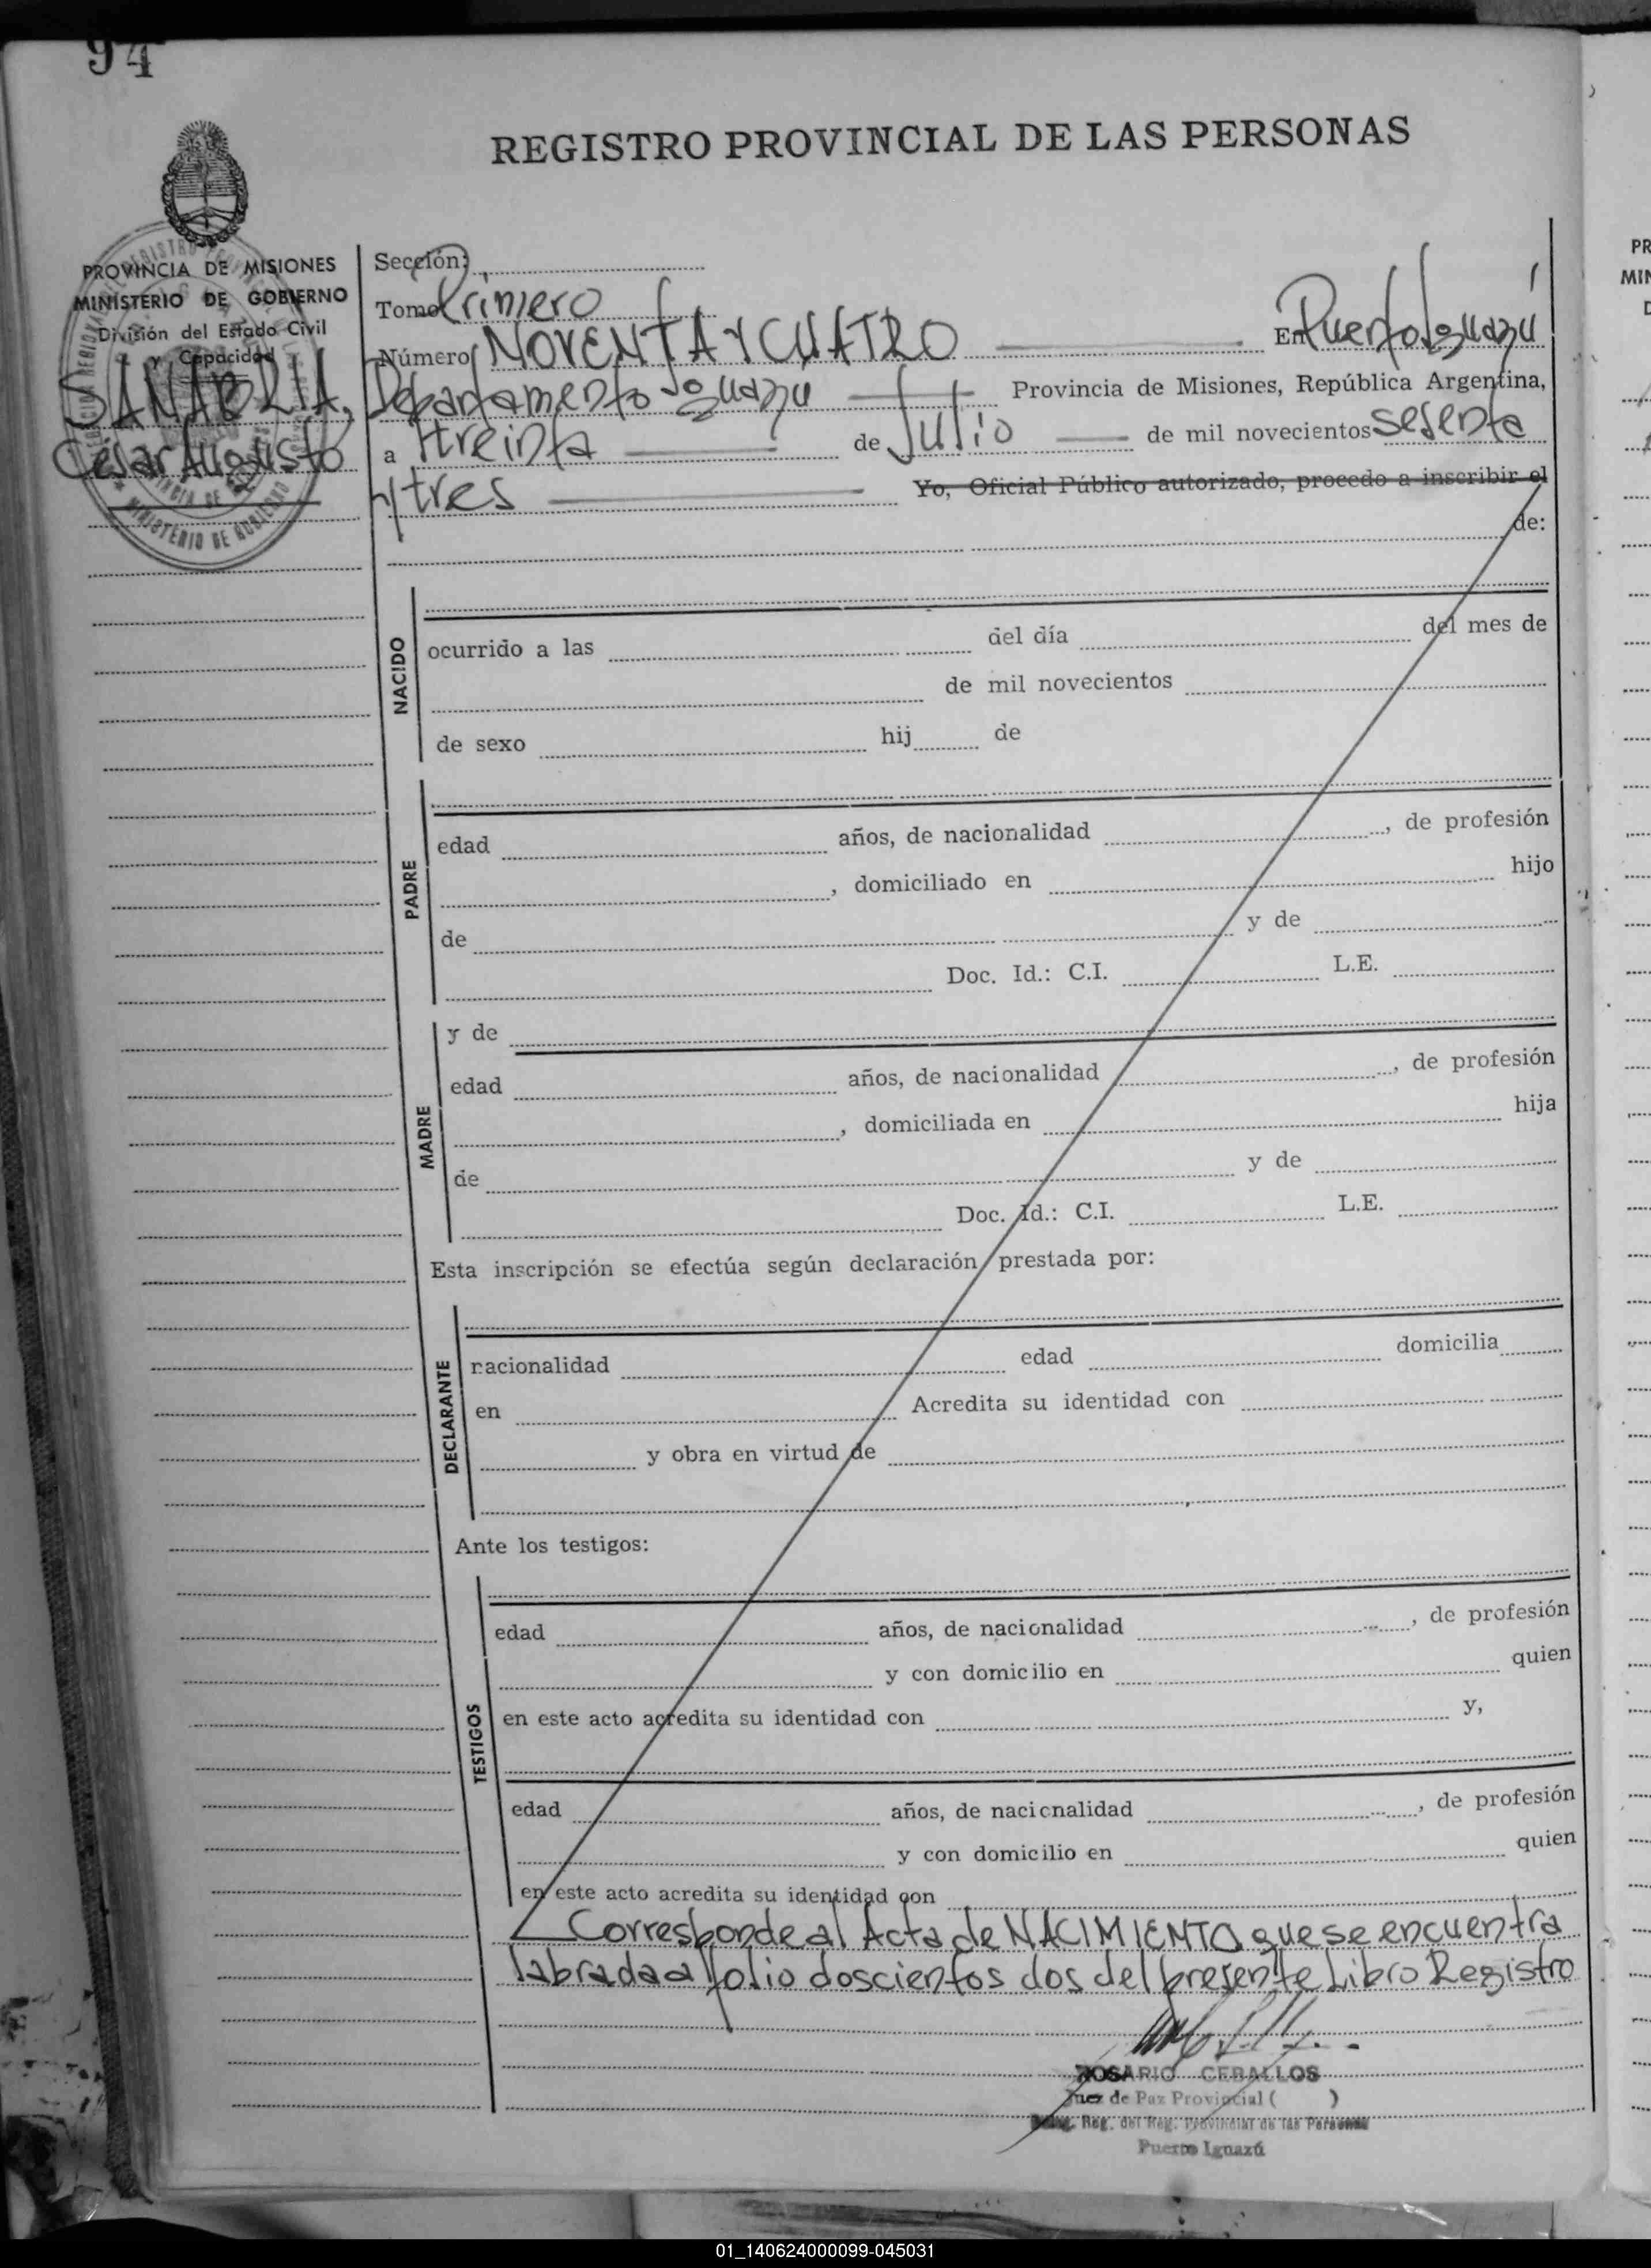 94
REGISTRO PROVINCIAL DE LAS PERSONAS
PROVINCIA DE MISIONES
MINISTERIO DE GOBIERNO
División del Estado Civil
y Capacidad
SANABRIA,
César Augusto
Sección:
Tomo Primero
Número NOVENTA Y CUATRO En Puerto Iguazú
Departamento Iguazú Provincia de Misiones, República Argentina,
a treinta de Julio de mil novecientos sesenta
y tres Yo, Oficial Público autorizado, procedo a inscribir el
de:
NACIDO
ocurrido a las del día del mes de
de mil novecientos
de sexo hij de
PADRE
edad años, de nacionalidad , de profesión
, domiciliado en hijo
de y de
Doc. Id.: C.I. L.E.
MADRE
y de
edad años, de nacionalidad , de profesión
, domiciliada en hija
de y de
Doc. Id.: C.I. L.E.
Esta inscripción se efectúa según declaración prestada por:
DECLARANTE
nacionalidad edad domicilia
en Acredita su identidad con
y obra en virtud de
Ante los testigos:
TESTIGOS
edad años, de nacionalidad , de profesión
y con domicilio en quien
en este acto acredita su identidad con y,
edad años, de nacionalidad , de profesión
y con domicilio en quien
en este acto acredita su identidad con
Corresponde al Acta de NACIMIENTO que se encuentra
labrada al folio doscientos dos del presente Libro Registro
ROSARIO CEBALLOS
Juez de Paz Provincial ( )
Reg. del Reg. Provincial de las Personas
Puerto Iguazú
01_140624000099-045031